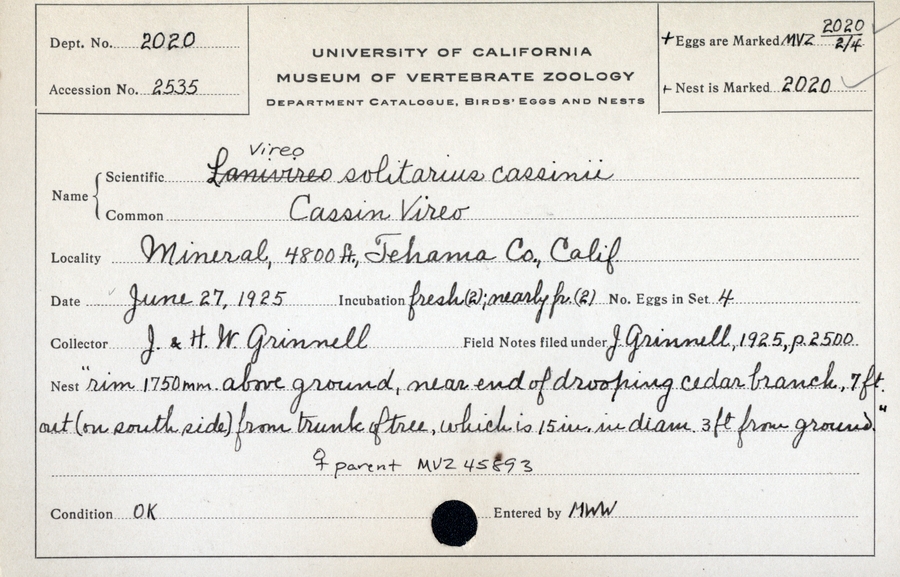 Dept. No. 2020
Accession No. 2535
UNIVERSITY OF CALIFORNIA
MUSEUM OF VERTEBRATE ZOOLOGY
DEPARTMENT CATALOGUE, BIRDS' EGGS AND NESTS
+ Eggs are Marked MVZ 2020 2/4
+ Nest is Marked 2020
Vireo
Name
Scientific Lanivireo solitarius cassinii
Common Cassin Vireo
Locality Mineral, 4800 ft., Tehama Co., Calif
Date June 27, 1925 Incubation fresh (2); nearly fr. (2) No. Eggs in Set 4
Collector J. & H. W. Grinnell Field Notes filed under J. Grinnell, 1925, p. 2500
Nest "rim 1750 mm. above ground, near end of drooping cedar branch, 7 ft.
out (on south side) from trunk of tree, which is 15 in. in diam. 3 ft from ground."
♀ parent MVZ 45893
Condition OK Entered by MWW